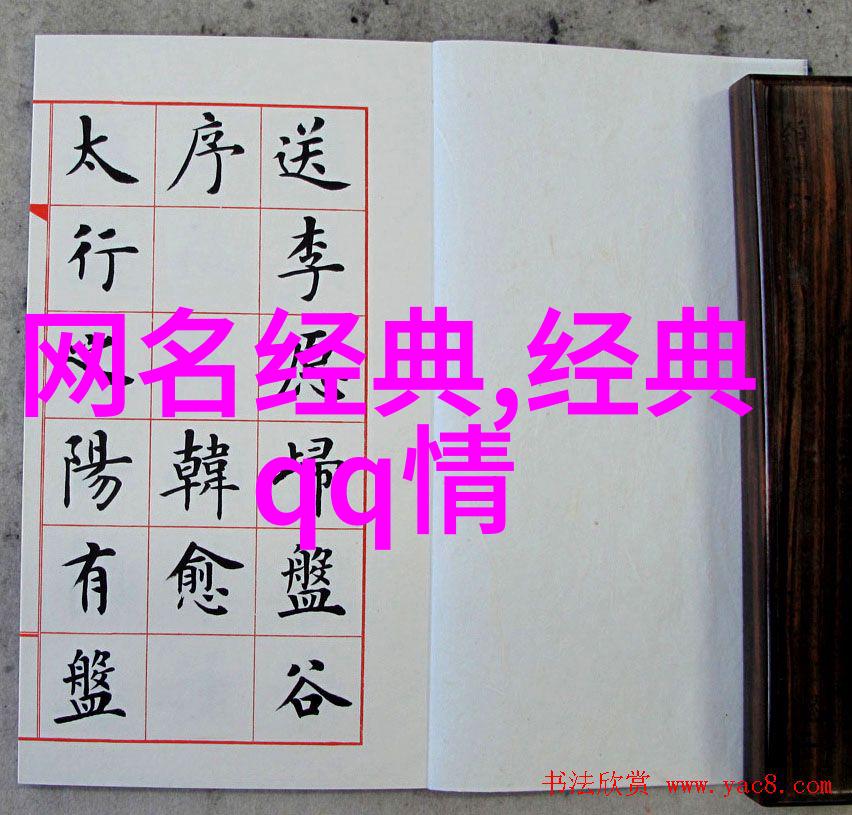 送李愿歸盤谷
序 韓愈
太行之陽有盤
网名经典,经典
qq情
书法欣赏 www.yac8.com